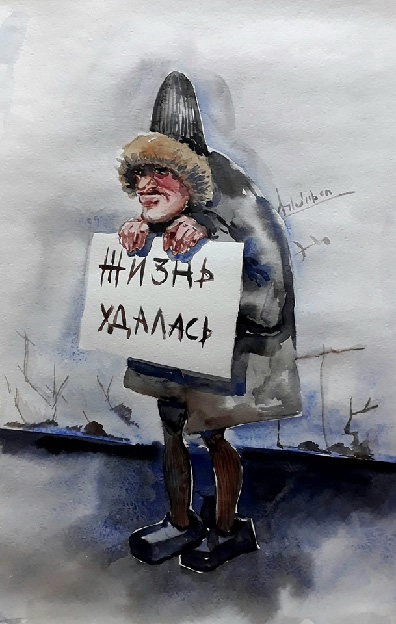 ЖИЗНЬ
УДАЛАСЬ